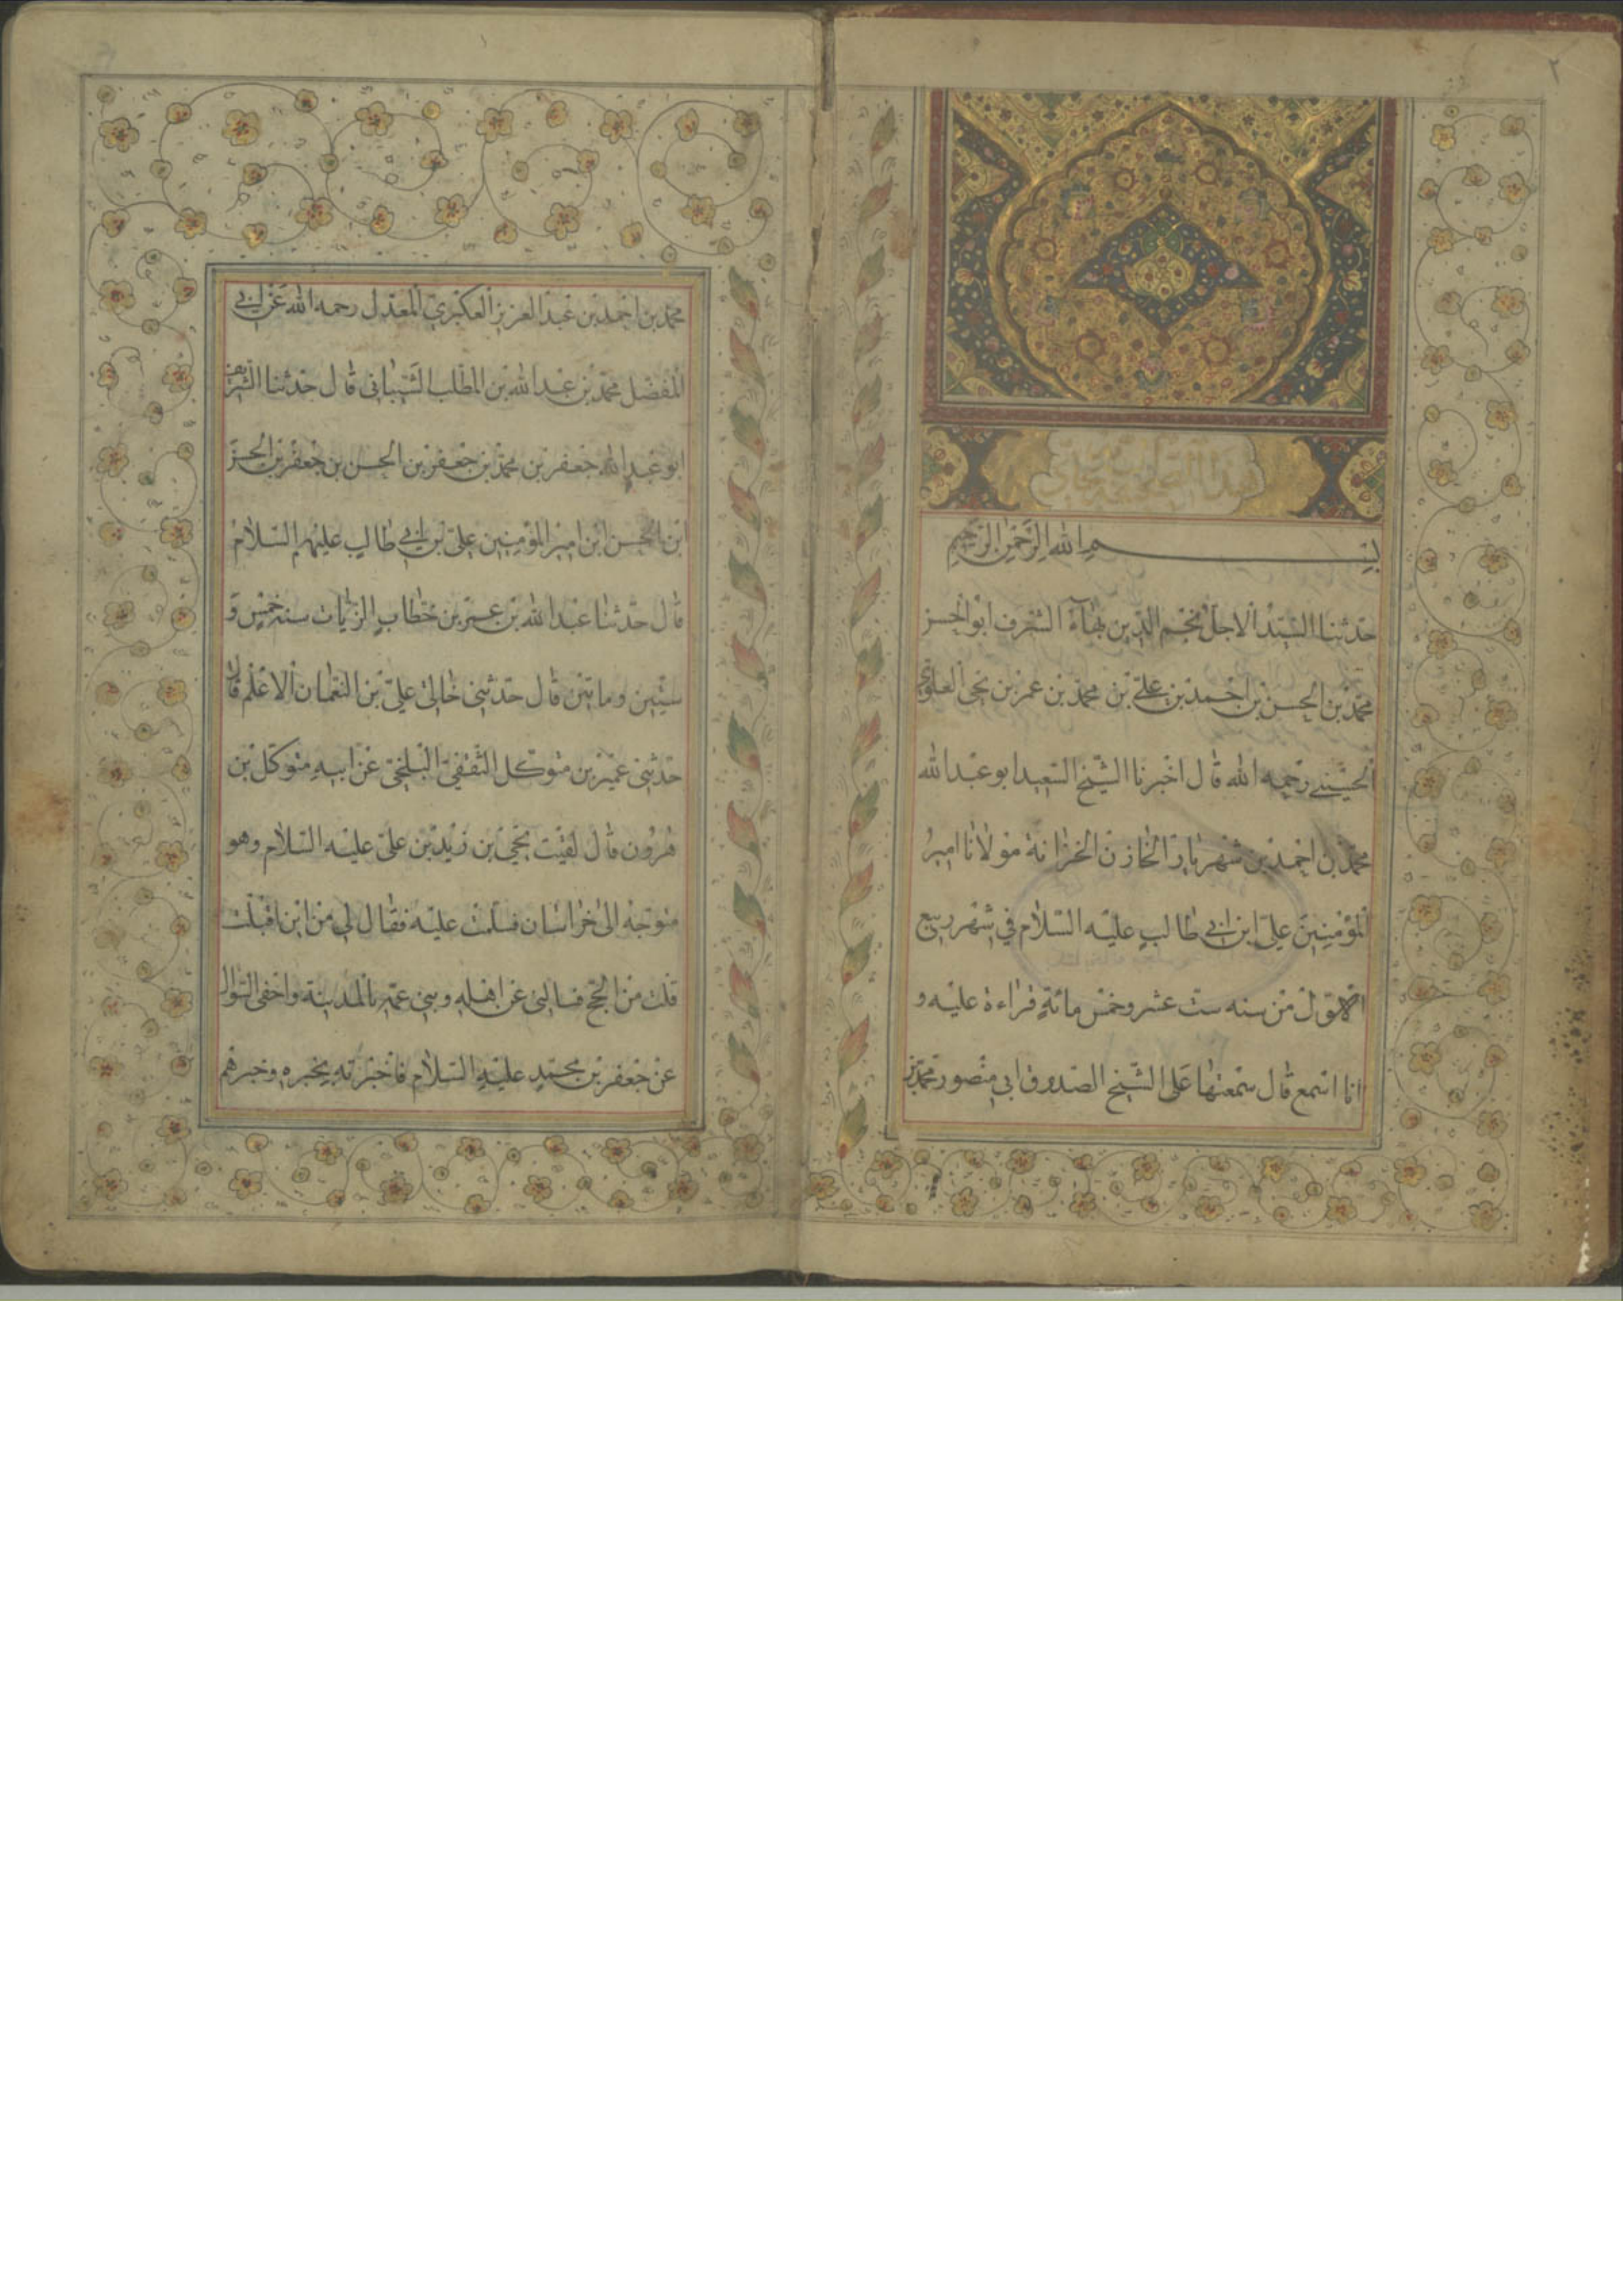 ٢
بسم الله الرحمن الرحيم
حدثنا السيد الاجل نجم الدين بهاء الشرف ابو الحسن
محمد بن الحسن بن احمد بن علي بن محمد بن عمر بن يحيى العلوي
الحسيني رحمه الله قال اخبرنا الشيخ السعيد ابو عبد الله
محمد بن احمد بن شهريار الخازن الخزانة مولانا امير
المؤمنين علي ابن ابي طالب عليه السلام في شهر ربيع
الاول من سنه ست عشر وخمس مائة قراءة عليه و
انا اسمع قال سمعتها على الشيخ الصدوق ابي منصور محمد بن
محمد بن احمد بن عبد العزيز العكبري المعدل رحمه الله عن ابي
المفضل محمد بن عبد الله بن المطلب الشيباني قال حدثنا الشريف
ابو عبد الله جعفر بن محمد بن جعفر بن الحسن بن جعفر بن الحسن
ابن الحسن ابن امير المؤمنين علي بن ابي طالب عليهم السلام
قال حدثنا عبد الله بن عمر بن خطاب الزيات سنه خمس و
ستين وماتين قال حدثني خالي علي بن النعمان الاعلم قال
حدثني عمير بن متوكل الثقفي البلخي عن ابيه متوكل بن
هرون قال لقيت يحيى بن زيد بن علي عليه السلام وهو
متوجه الى خراسان فسلمت عليه فقال لي من اين اقبلت
قلت من الحج فسالني عن اهله وبني عمه بالمدينة واحفى السؤال
عن جعفر بن محمد عليه السلام فاخبرته بخبره وخبرهم